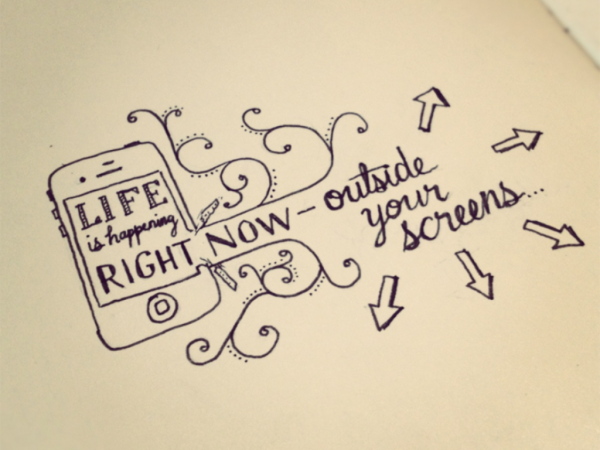 LIFE
is happening
RIGHT NOW — outside
your
screens...